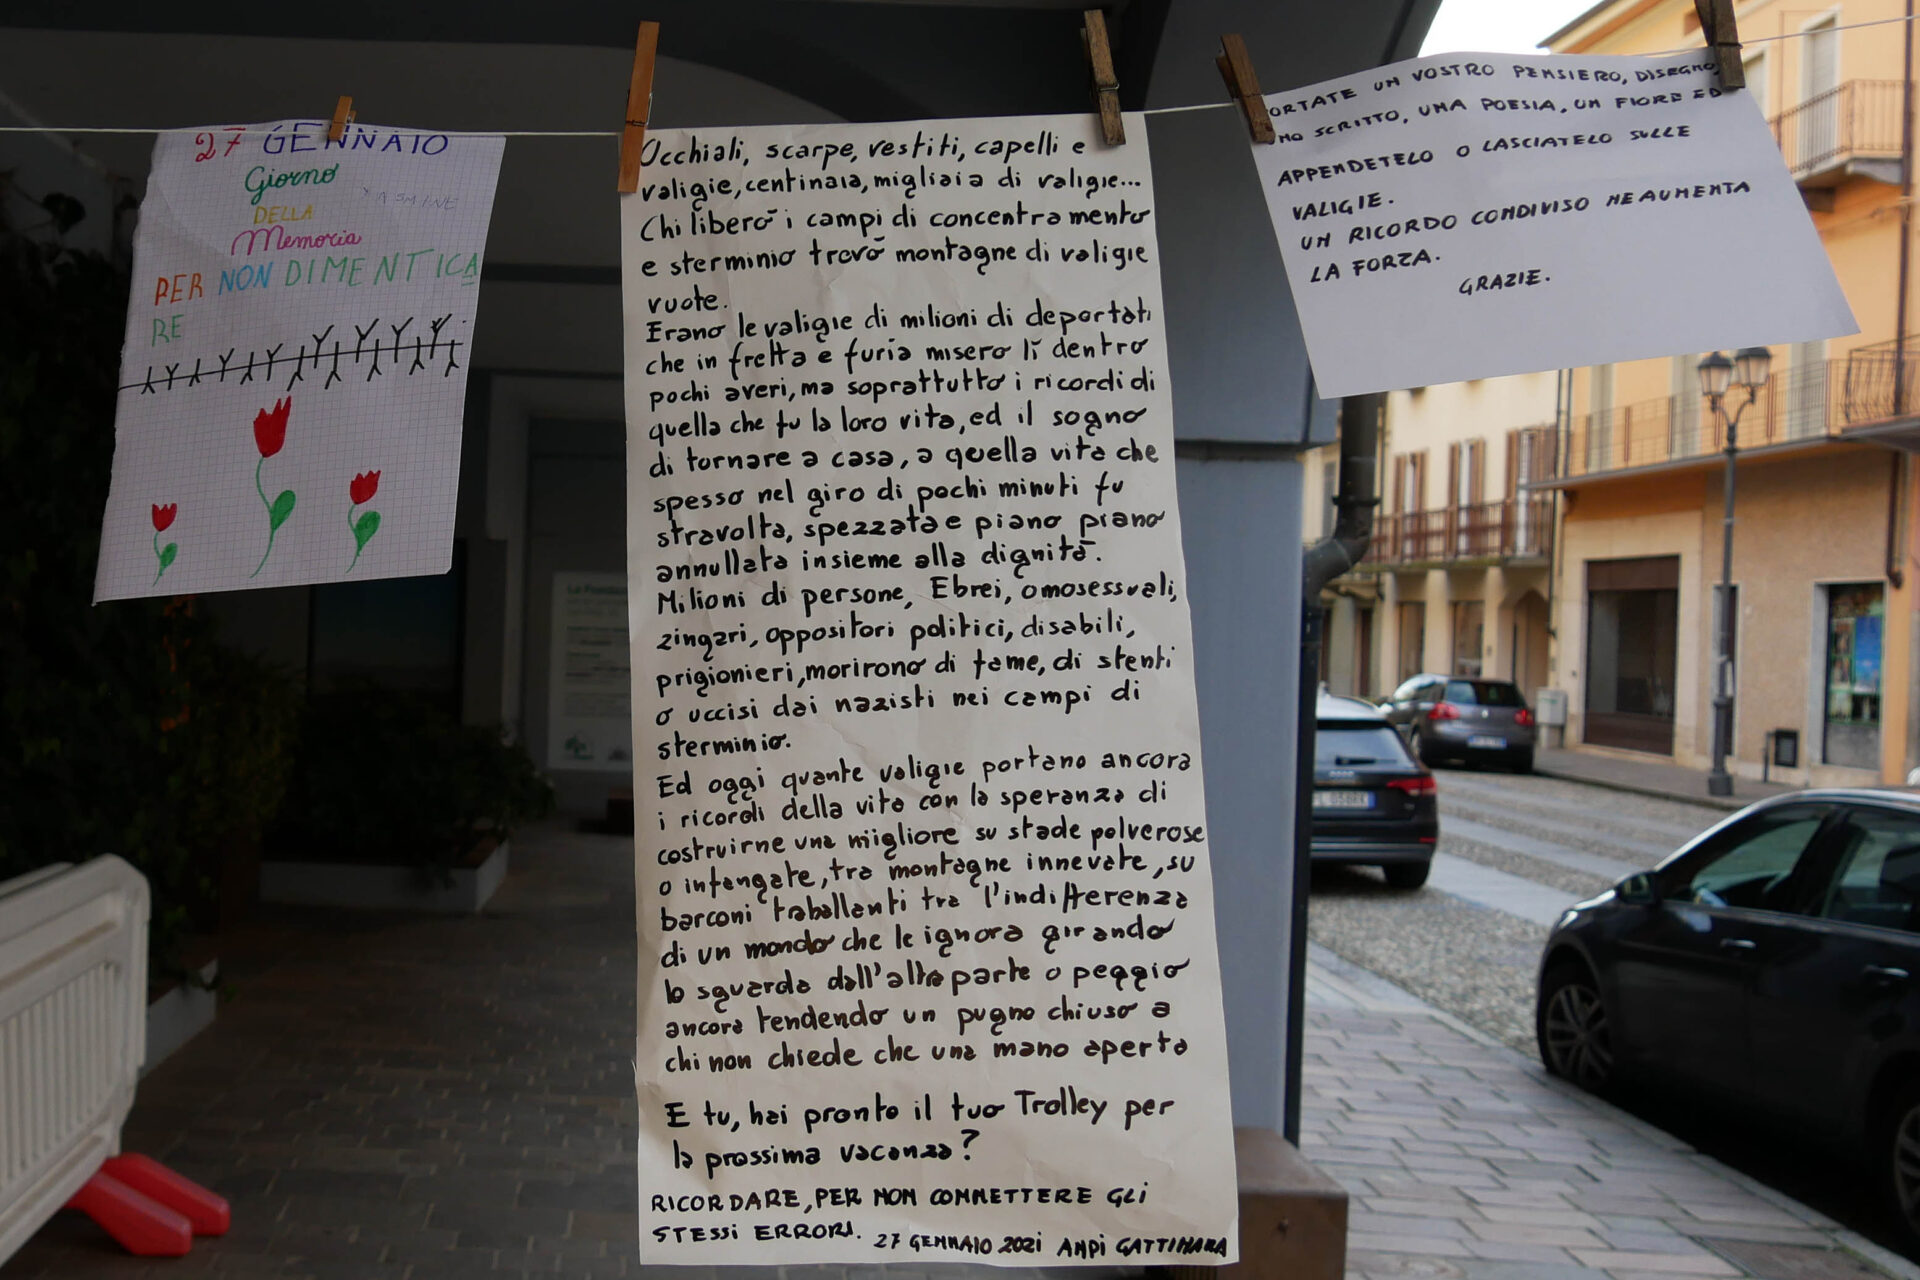 27 GENNAIO
Giorno
YASMINE
DELLA
Memoria
PER NON DIMENTICA
RE
Occhiali, scarpe, vestiti, capelli e
valigie, centinaia, migliaia di valigie...
Chi liberò i campi di concentramento
e sterminio trovò montagne di valigie
vuote.
Erano le valigie di milioni di deportati
che in fretta e furia misero lì dentro
pochi averi, ma soprattutto i ricordi di
quella che fu la loro vita, ed il sogno
di tornare a casa, a quella vita che
spesso nel giro di pochi minuti fu
stravolta, spezzata e piano piano
annullata insieme alla dignità.
Milioni di persone, Ebrei, omosessuali,
zingari, oppositori politici, disabili,
prigionieri, morirono di fame, di stenti
o uccisi dai nazisti nei campi di
sterminio.
Ed oggi quante valigie portano ancora
i ricordi della vita con la speranza di
costruirne una miigliore su stade polverose
o infangate, tra montagne innevate, su
barconi traballanti tra l'indifferenza
di un mondo che le ignora girando
lo sguardo dall'altra parte o peggio
ancora tendendo un pugno chiuso a
chi non chiede che una mano aperta
E tu, hai pronto il tuo Trolley per
la prossima vacanza?
RICORDARE, PER NON COMMETTERE GLI
STESSI ERRORI. 27 GENNAIO 2021 ANPI GATTINARA
ORTATE UN VOSTRO PENSIERO, DISEGNO,
NO SCRITTO, UNA POESIA, UN FIORE ED
APPENDETELO O LASCIATELO SULLE
VALIGIE.
UN RICORDO CONDIVISO NE AUMENTA
LA FORZA.
GRAZIE.